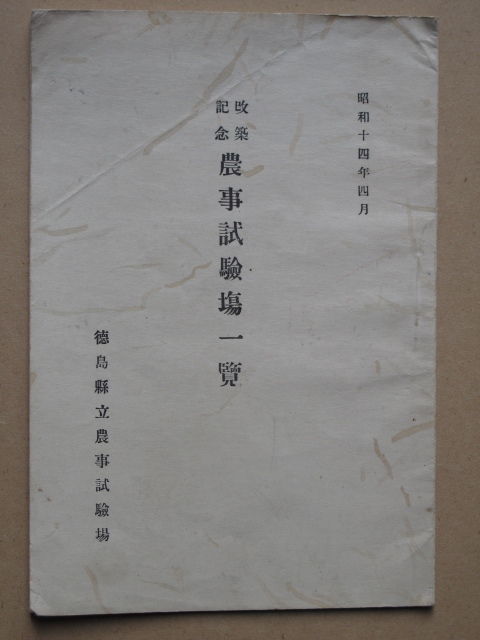 昭和十四年四月
改築
記念
農事試驗場一覽
德島縣立農事試驗場